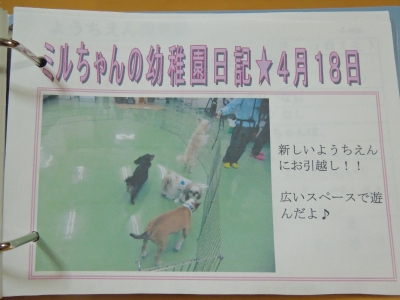 ミルちゃんの幼稚園日記★4月18日
新しいようちえん
にお引越し！！
広いスペースで遊
んだよ♪